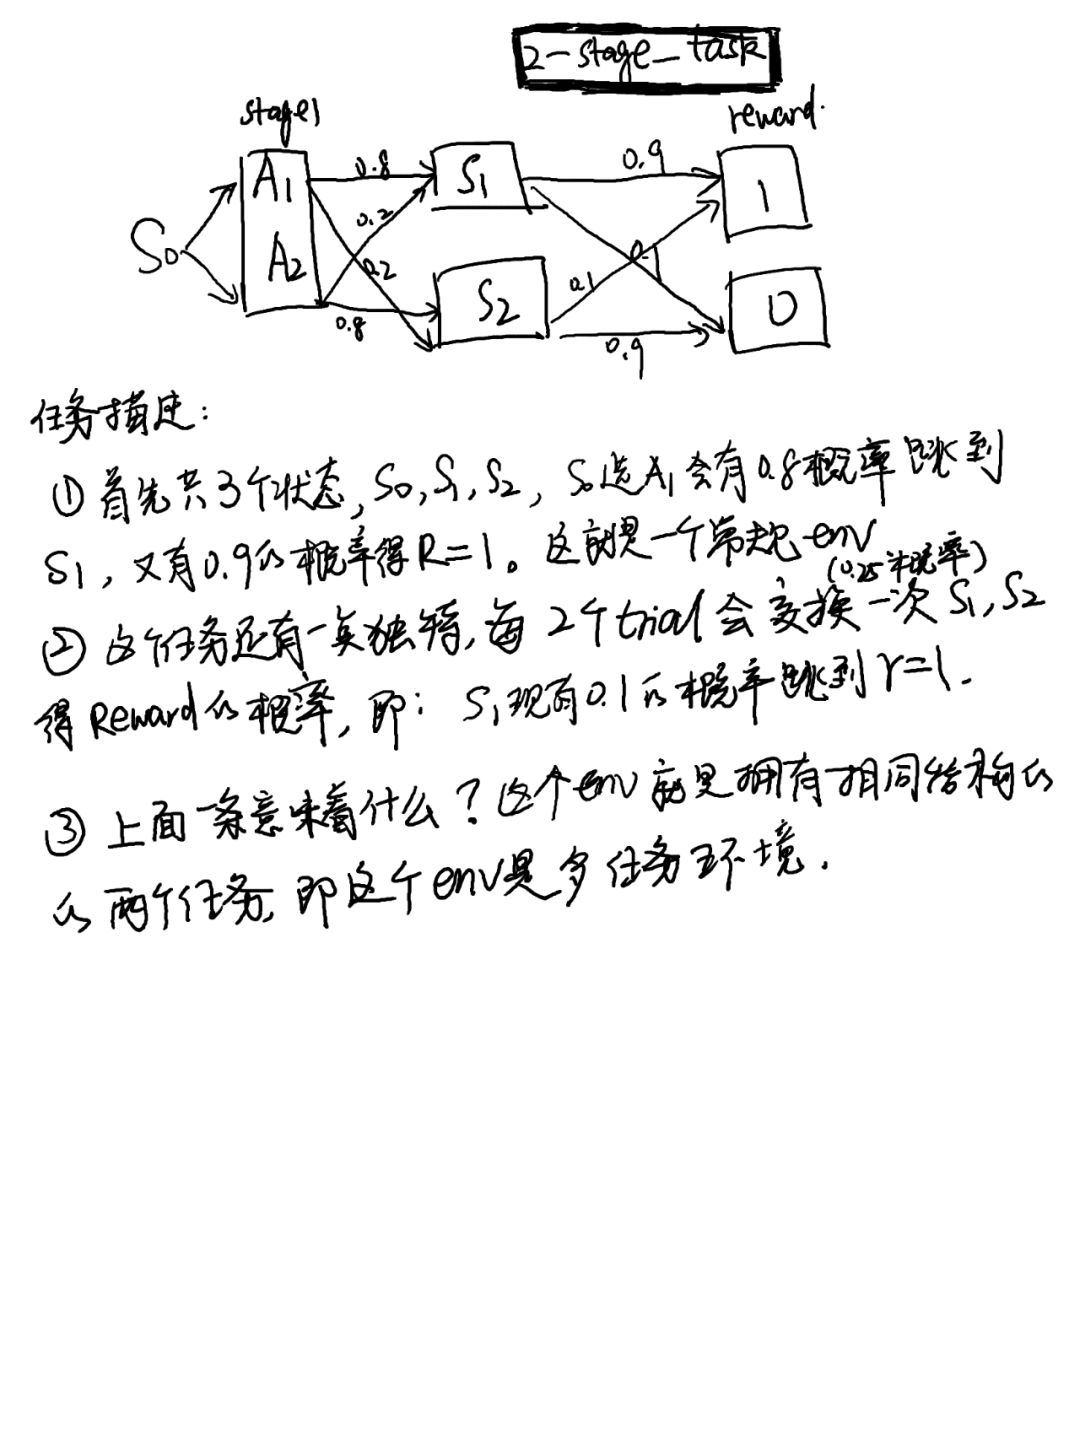 2-stage_task
stage1
reward.
A1
0.8
S1
0.9
1
S0
0.2
A2
0.2
0.1
0.
S2
0
0.8
0.9
任务描述:
① 首先共3个状态, S0, S1, S2, S0选A1会有0.8概率跳到
S1, 又有0.9的概率得R=1。这就是一个常规env
(0.25 概率)
② 这个任务还有一点独特, 每2个trial会交换一次S1, S2
得Reward的概率, 即: S1现有0.1的概率跳到r=1.
③ 上面一条意味着什么? 这个env就是拥有相同结构的
的两个任务, 即这个env是多任务环境.